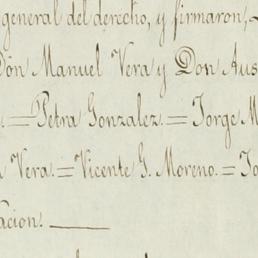 general del derecho, y firmaron,
Don Manuel Vera y Don Aus
.=Petra Gonzalez.=Jorge M
Vera.=Vicente G. Moreno.=Jo
acion.